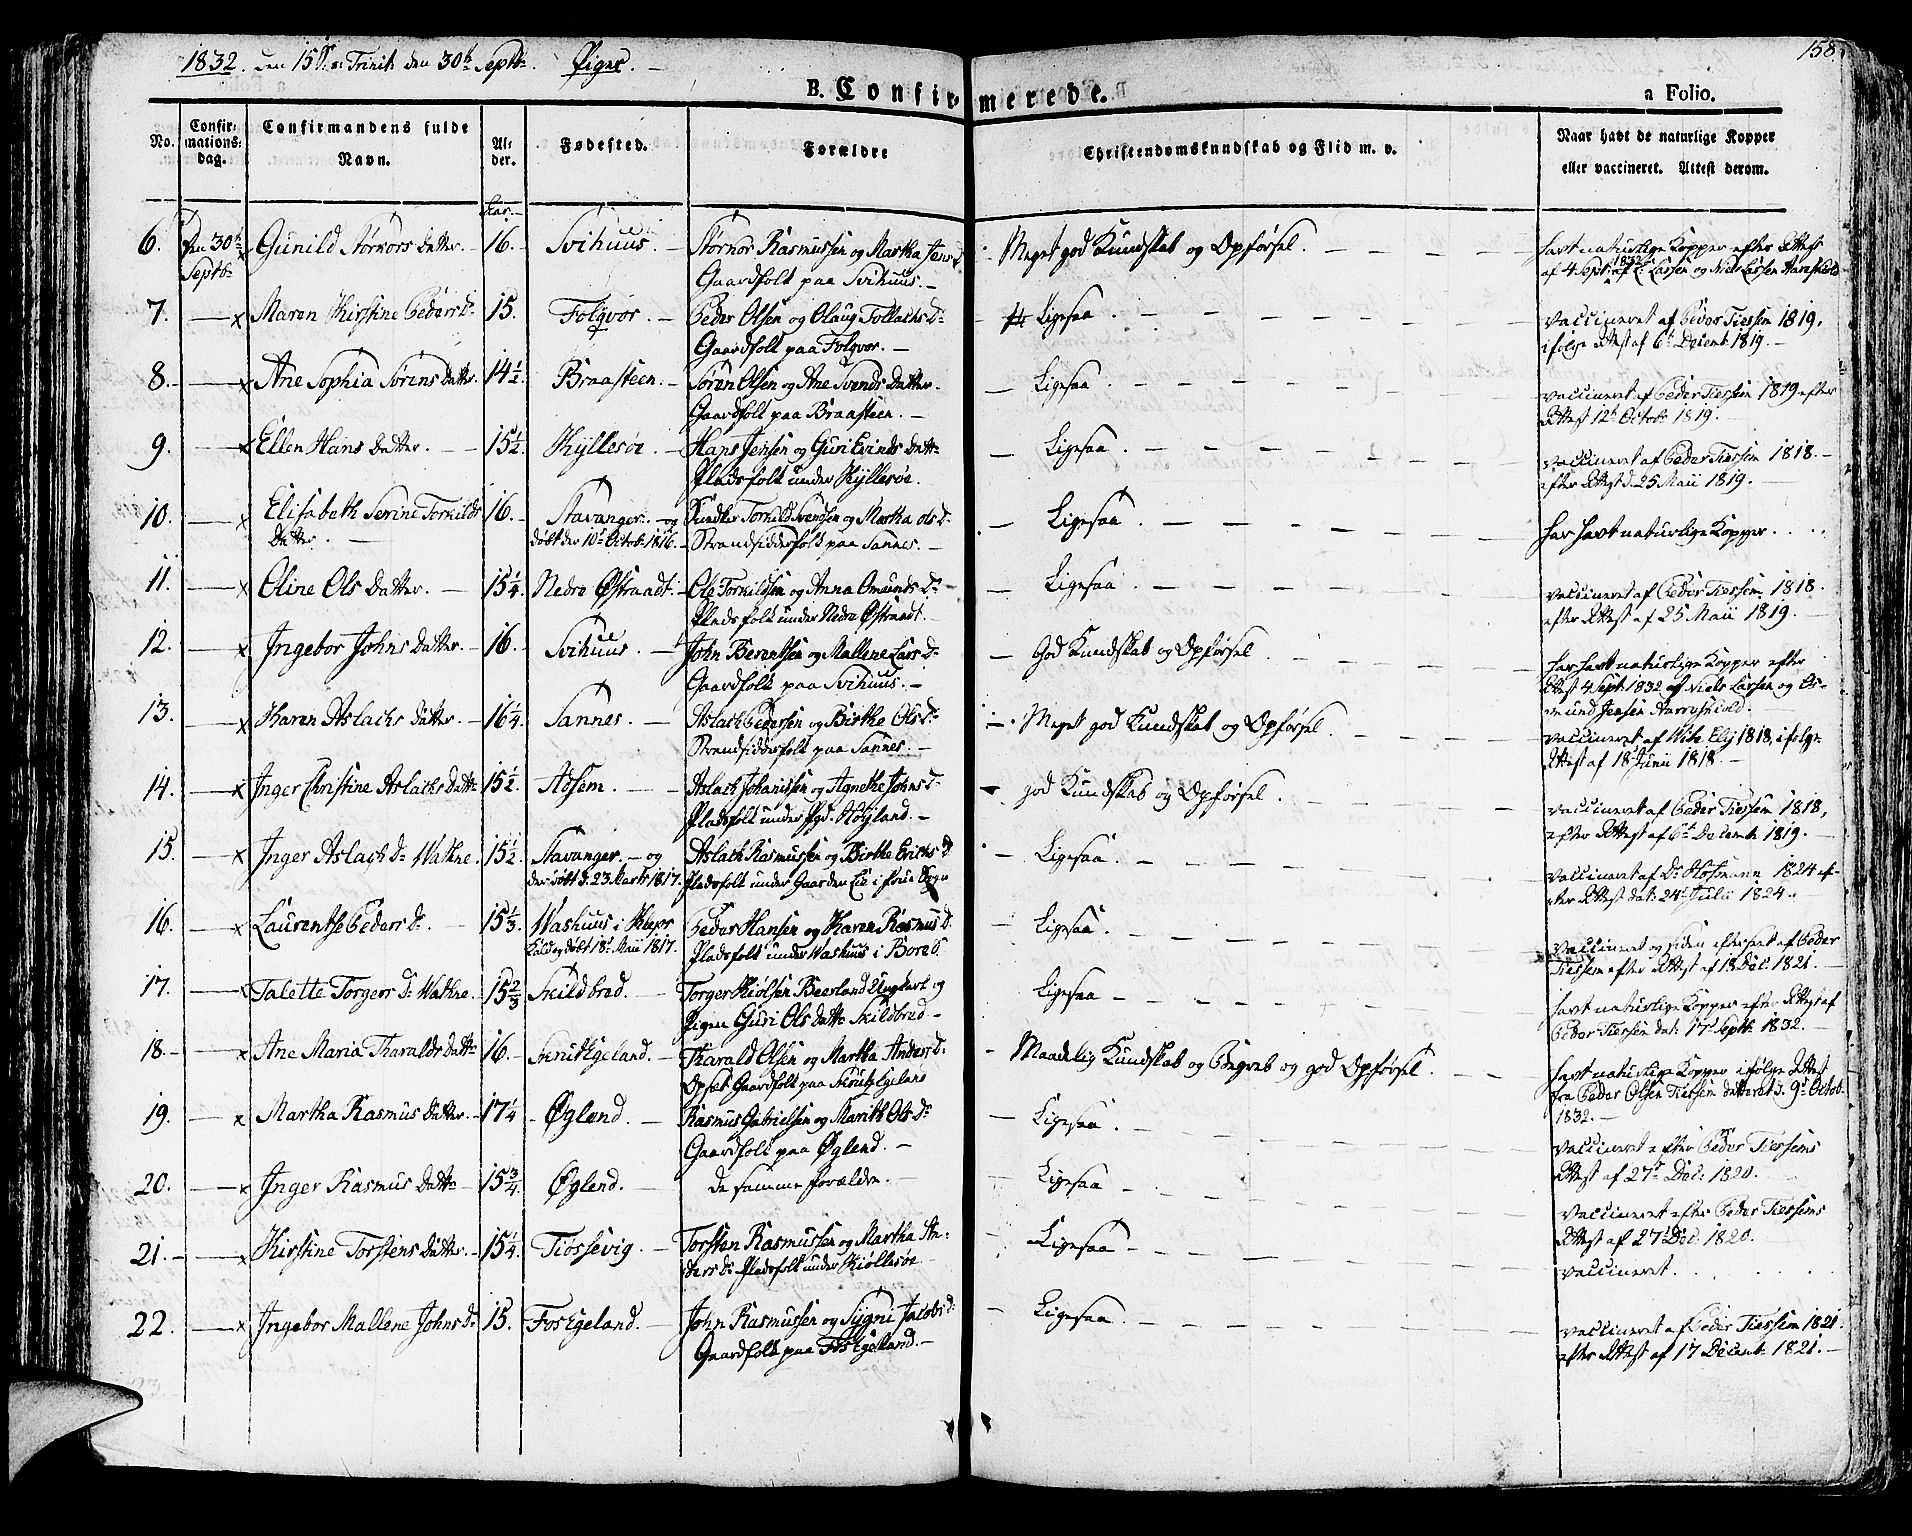 1832. den 15de S. Trinit: den 30te Septb. Piger. 158.
B. Confir- merede. a Folio.
No. Confir-mations-dag. Confirmandens fulde Navn. Al-der. Fødested. Forældre Christendomskundskab og Flid m. v. Naar havt de naturlige Kopper eller vaccineret. Attest derom.
Aar.
6. den 30te Septb. x Gunild Størkors Datter. 16. Svihuus. Størkor Rasmussen og Martha Jens D. Meget god Kundskab og Opførsel. havt naturlige Kopper efter Attest
Gaardfolk paa Svihuus. af 4 Septb. 1832 af L. Larsen og Niels Larsen
7. x Maren Kirstine Peders D. 15. Folqvor. Peder Olsen og Olaug Tollachs D. Ligesaa vaccineret af Peder Tiessem 1819,
Gaardfolk paa Folqvor. ifølge Attest af 6te Decemb. 1819.
8. x Ane Sophia Sørens Datter. 14½ Braasteen. Søren Olsen og Ane Svends Datter. Ligesaa vaccineret af Peder Tiessem 1819 efter
Gaardfolk paa Braasteen. Attest 12te Octob. 1819.
9. x Ellen Hans Datter. 15½ Kyllesøe. Hans Jensen og Guri Evinds Datt. Ligesaa vaccineret af Peder Tiessem 1818.
Pladsfolk under Kyllesøe. efter Attest d. 25 Maii 1819.
10. x Elisabeth Serine Torkilds Datter. 16. Stavanger. og Torkild Svendsen og Martha Ols D. Ligesaa har havt naturlige Kopper.
døbt der 10de Octob. 1816. Strandsidderfolk paa Sannes.
11. x Oline Ols Datter. 15¼ Nedre Østraadt. Ole Torkildsen og Anna Omunds D. Ligesaa vaccineret af Peder Tiessem 1818.
Pladsfolk under Nedre Østraadt. efter Attest af 25 Maii 1819.
12. x Ingebor Johns Datter. 16. Svihuus. John Berentsen og Mallene Lars D. God Kundskab og Opførsel har havt naturlige Kopper efter
Gaardfolk paa Svihuus. Attest 4 Sept. 1832 af Niels Larsen og Os-
mund Jensen
13. x Karen Aslachs Datter. 16¼ Sannes. Aslach Pedersen og Birthe Ols D. Meget god Kundskab og Opførsel. vaccineret af 1818, ifølge
Strandsidderfolk paa Sannes. Attest af 18 Junii 1818.
14. x Inger Christine Aslachs Datt. 15½ Adsem. Aslach Johanissen og Agnethe Johns D. god Kundskab og Opførsel. vaccineret af Peder Tiessem 1818,
Pladsfolk under Høyland. efter Attest af 6te Decemb. 1819.
15. x Inger Aslachs D. Wathne. 15½ Stavanger. og Aslach Rasmussen og Birthe Erichs D. Ligesaa vaccineret af D. 1824 ef-
der døbt d. 23 Marts 1817. Pladsfolk under Gaarden Lie i Sogn ter Attest dat: 24de Julii 1824.
16. x Laurentse Peders D. 15⅓ Washuus i Klepx Peder Hansen og Karen Rasmus D. Ligesaa vaccineret og siden efterseet af Peder
døbt 18de Maii 1817. Pladsfolk under Washuus i Bore S. Tiessem efter Attest af 13 Dec. 1821.
17. x Talette Torgers D. Wathne. 15⅔ Skildbred. Torger Kiølsen Beerland Ungkarl og Ligesaa havt naturlige Kopper efter Attest af
Pigen Guri Ols Datt. Skildbred Peder Tiessem dat: 17de Septb. 1832.
18. x Ane Maria Tharalds Datt. 16. Skrudkgeland. Tharald Olsen og Martha Anders D. Maadelig Kundskab og Begreb og god Opførsel. havt naturlige Kopper ifølge Attest
Opset Gaardfolk paa fra Peder Olsen Tiessem dateret d. 9de Octob.
1832.
19. x Martha Rasmus Datter. 17¼ Øglend. Rasmus Gabrielsen og Marith Ols D. Ligesaa vaccineret efter Peder Tiessems
Gaardfolk paa Øglend. Attest af 27de Dec: 1820.
20. x Inger Rasmus Datt. 15¾ Øglend. de samme Forældre. Ligesaa vaccineret efter Peder Tiessems
Attest af 27de Dec: 1820.
21. x Kirstine Torstens Datter. 15¼ Tiøssevig. Torsten Rasmussen og Martha An- Ligesaa vaccineret.
ders D. Pladsfolk under Kiøllesøe
22. x Ingebor Mallene Johns D. 15. Foskgeland. John Rasmussen og Sygni Jacobs D. Ligesaa vaccineret af Peder Tiessem 1821.
Gaardfolk paa Foskgeland. efter Attest af 17 Decemb. 1821.